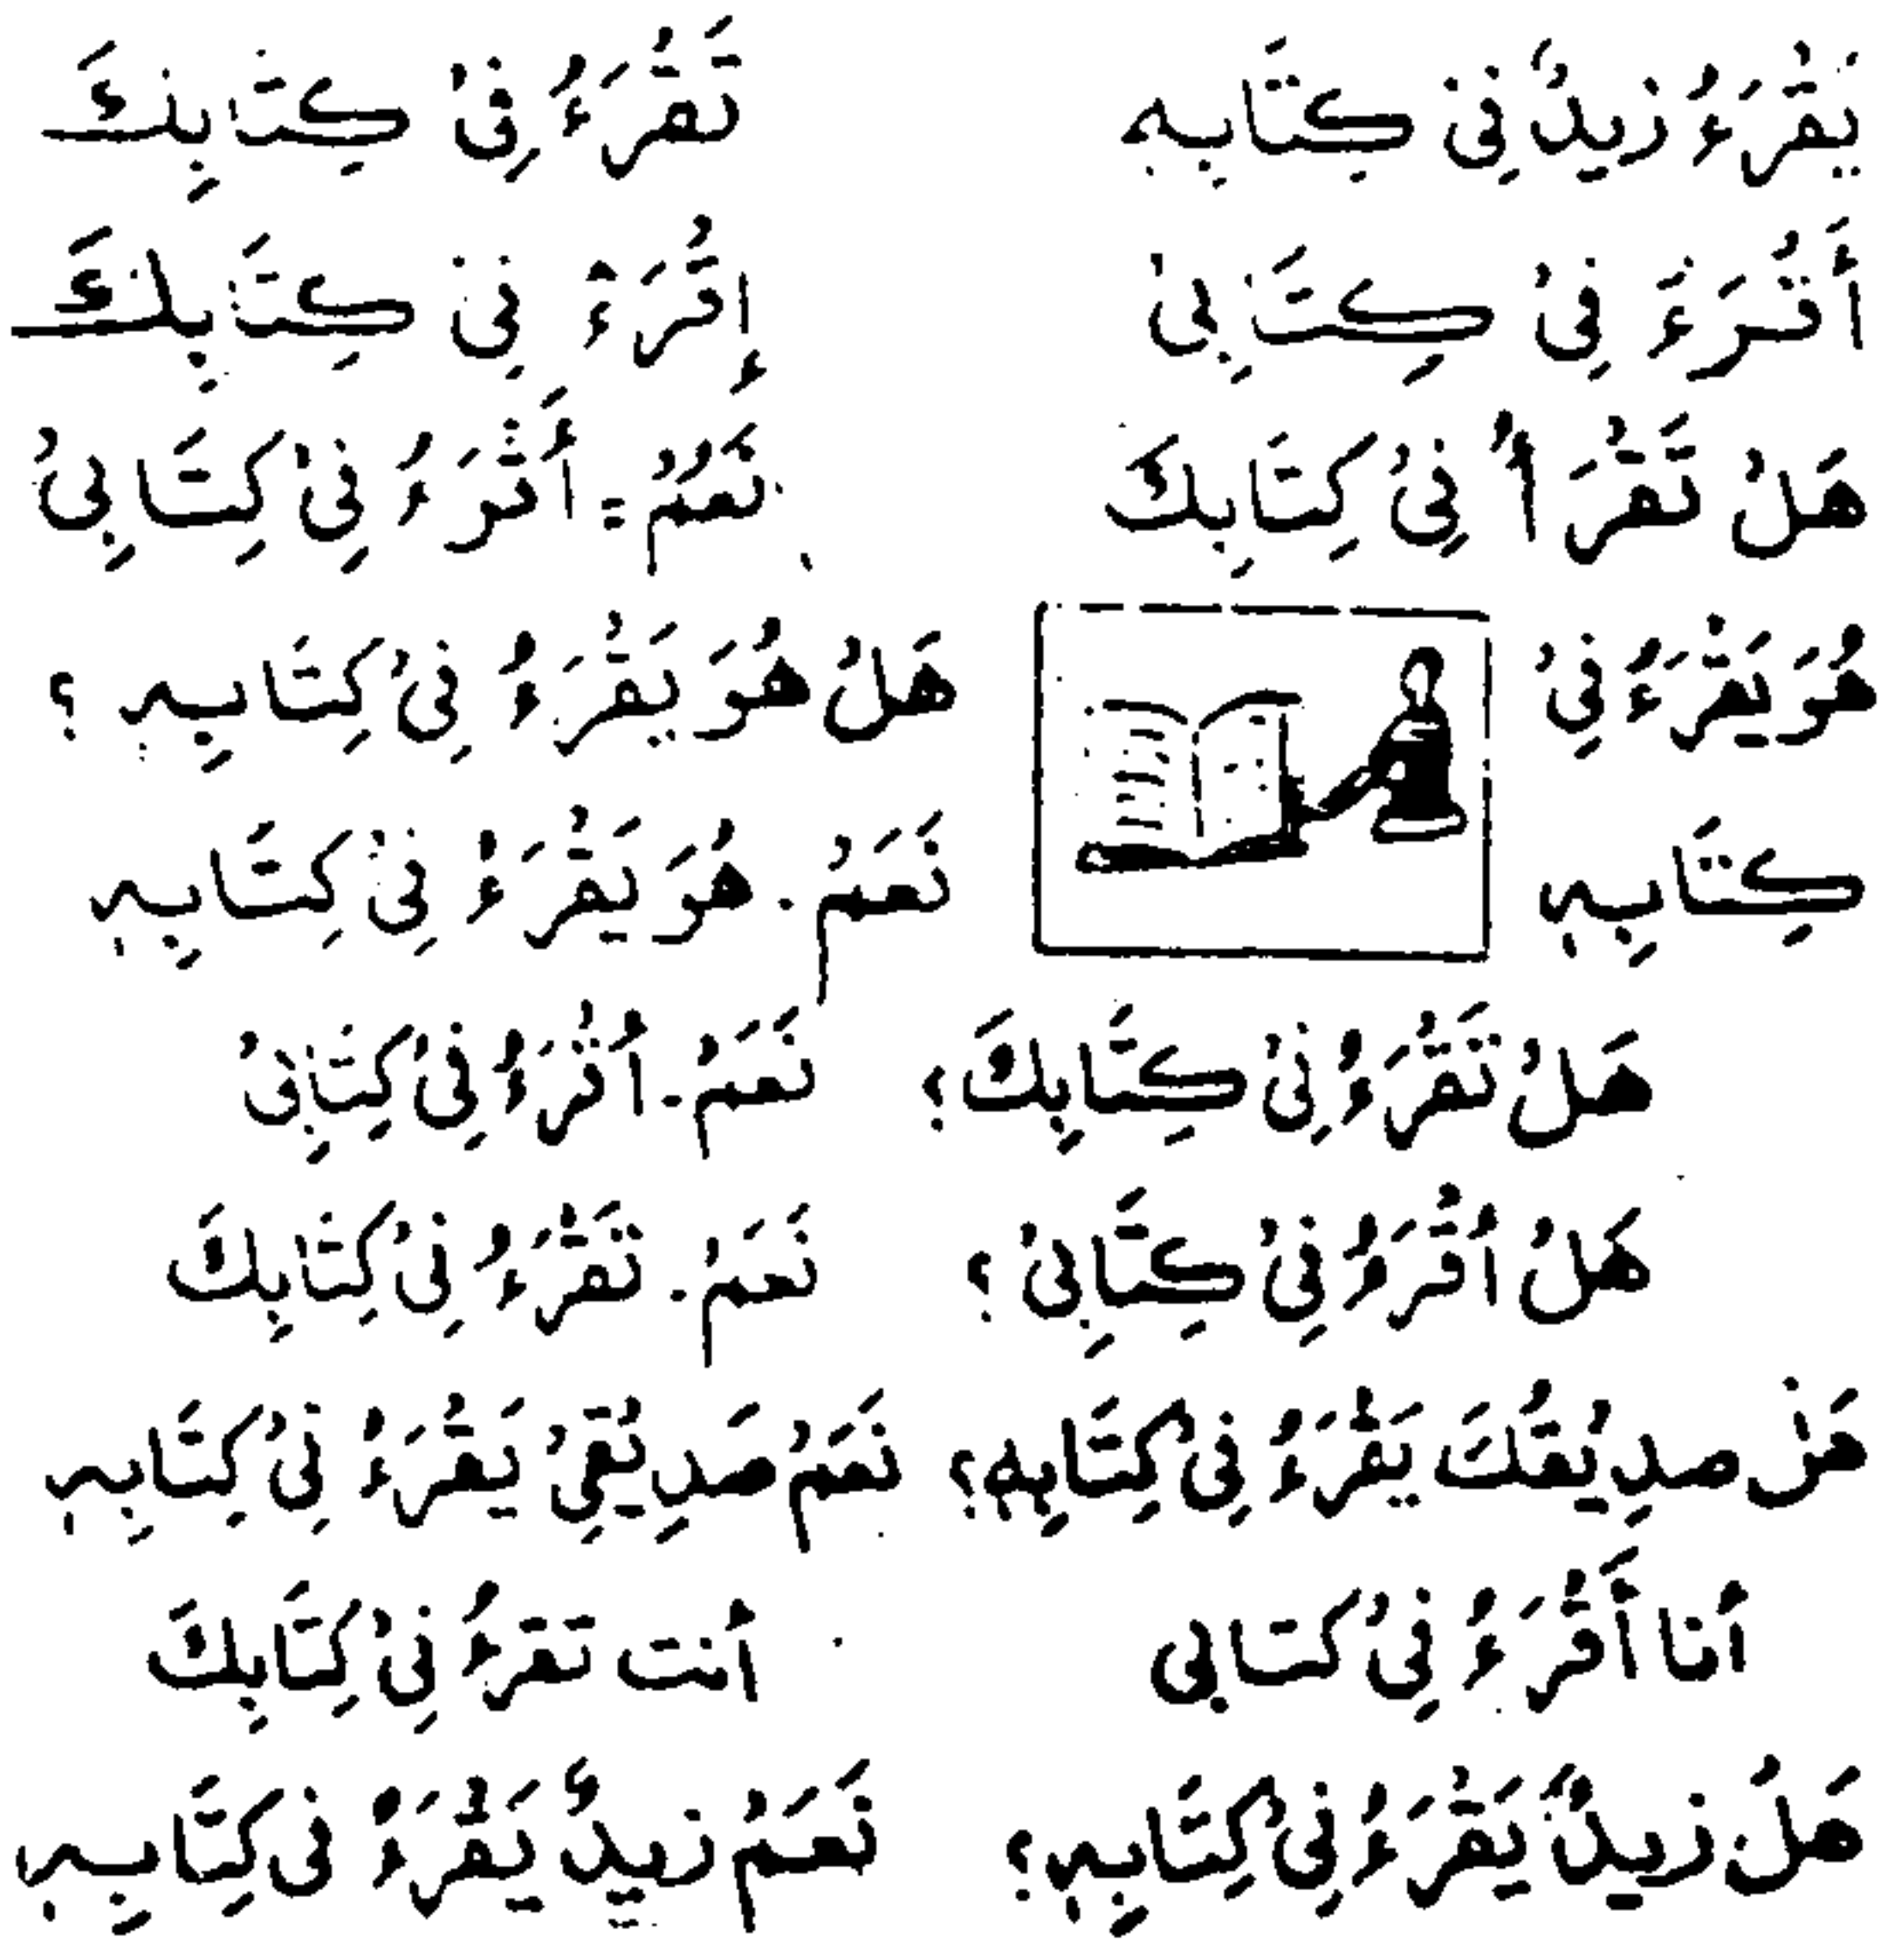 يَقْرَءُ زَيْدٌ فِىْ كِتَابِهٖ تَقْرَءُ فِىْ كِتَابِكَ
أَقْرَءُ فِىْ كِتَابِىْ إِقْرَءْ فِىْ كِتَابِكَ
هَلْ تَقْرَأُ فِىْ كِتَابِكَ نَعَمْ = أَقْرَءُ فِىْ كِتَابِىْ
هُوَ يَقْرَءُ فِىْ هَلْ هُوَ يَقْرَءُ فِىْ كِتَابِهٖ ؟
كِتَابِهٖ نَعَمْ . هُوَ يَقْرَءُ فِىْ كِتَابِهٖ
هَلْ تَقْرَءُ فِىْ كِتَابِكَ ؟ نَعَمْ . أَقْرَءُ فِىْ كِتَابِىْ
هَلْ أَقْرَءُ فِىْ كِتَابِىْ ؟ نَعَمْ . تَقْرَءُ فِىْ كِتَابِكَ
صَدِيْقُكَ يَقْرَءُ فِىْ كِتَابِهٖ ؟ نَعَمْ صَدِيْقِىْ يَقْرَءُ فِىْ كِتَابِهٖ
أَنا أَقْرَءُ فِىْ كتابى أنت تقرءُ فِىْ كِتَابِكَ
هَلْ زَيْدٌ يَقْرَءُ فِىْ كِتَابِهٖ ؟ نَعَمْ زَيْدٌ يَقْرَءُ فى كِتَابِهٖ